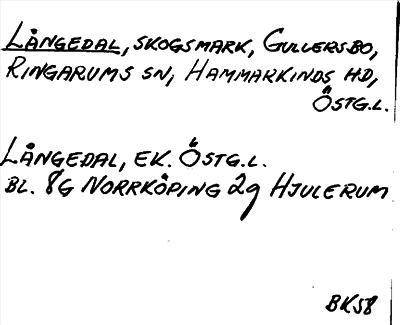 LÅNGEDAL, SKOGSMARK, GULLERSBO,
RINGARUMS SN, HAMMARKINDS HD,
ÖSTG.L.
LÅNGEDAL, EK. ÖSTG.L.
BL. 8G NORRKÖPING 2g HJULERUM
BK58